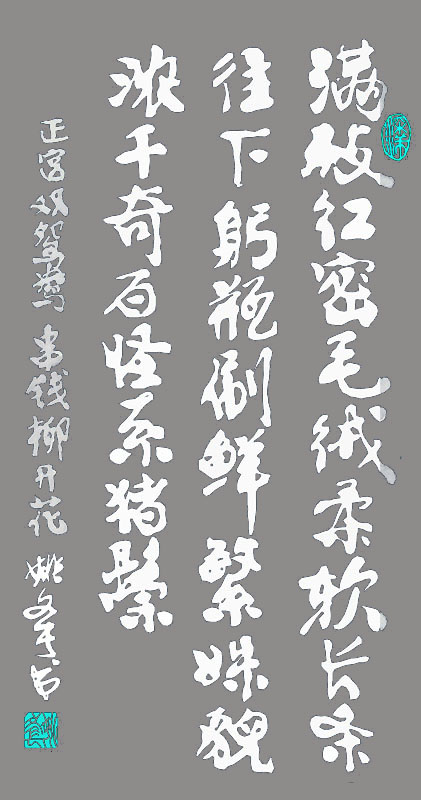 满枝红密毛绒柔软长条
往下躬瓶倒鲜繁姝貌
浓千奇百怪系猪鬃
正宫双鸳鸯 串钱柳开花 姚书